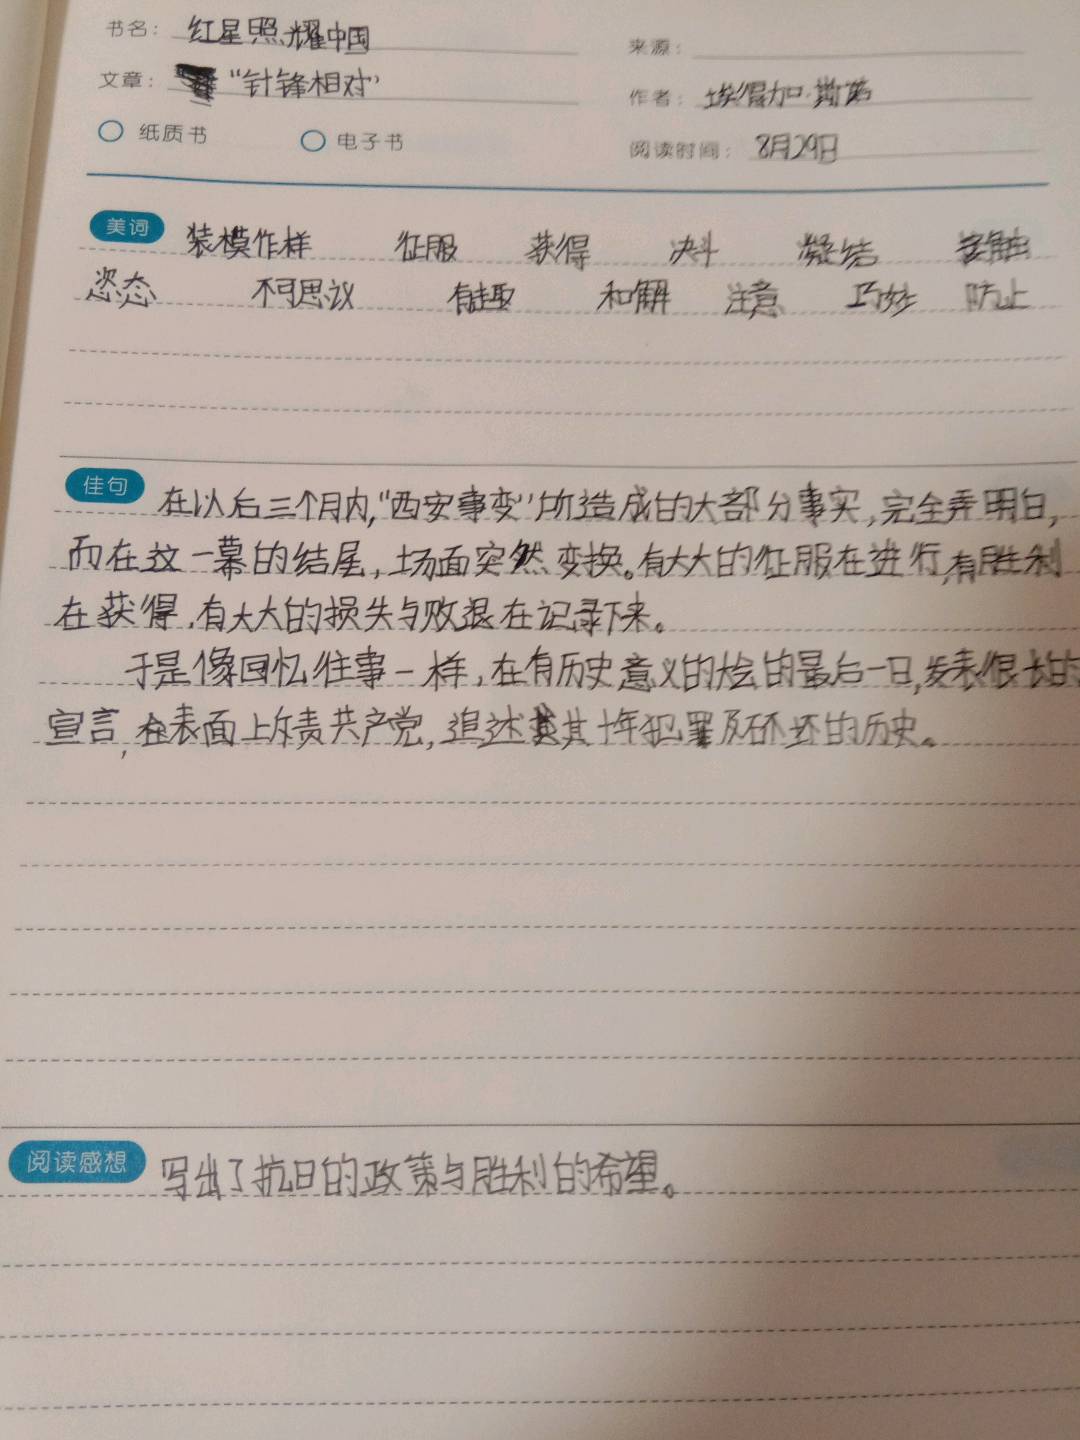 书名：红星照耀中国
来源：
文章："针锋相对"
作者：埃德加·斯诺
纸质书 电子书
阅读时间：8月29日
美词 装模作样 征服 获得 决斗 凝结 接触
恣态 不可思议 有趣 和解 注意 巧妙 防止
佳句 在以后三个月内,"西安事变"所造成的大部分事实,完全弄明白,
而在这一幕的结尾,场面突然变换。有大大的征服在进行,有胜利
在获得,有大大的损失与败退在记录下来。
于是像回忆往事一样,在有历史意义的会的最后一日,发表很长的
宣言,在表面上斥责共产党,追述其十年犯罪及破坏的历史。
阅读感想 写出了抗日的政策与胜利的希望。